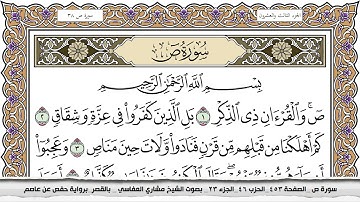 الجزء الثالث والعشرون
سورة ص ٣٨
سُورَةُ صٓ
بِسْمِ ٱللَّهِ ٱلرَّحْمَٰنِ ٱلرَّحِيمِ
صٓ ۚ وَٱلْقُرْءَانِ ذِى ٱلذِّكْرِ ١ بَلِ ٱلَّذِينَ كَفَرُوا۟ فِى عِزَّةٍ وَشِقَاقٍ ٢
كَمْ أَهْلَكْنَا مِن قَبْلِهِم مِّن قَرْنٍ فَنَادَوا۟ وَّلَاتَ حِينَ مَنَاصٍ ٣ وَعَجِبُوٓا۟
سورة ص _ الصفحة ٤٥٣ _ الحزب ٤٦ _ الجزء ٢٣ _ بصوت الشيخ مشاري العفاسي _ بالقصر برواية حفص عن عاصم